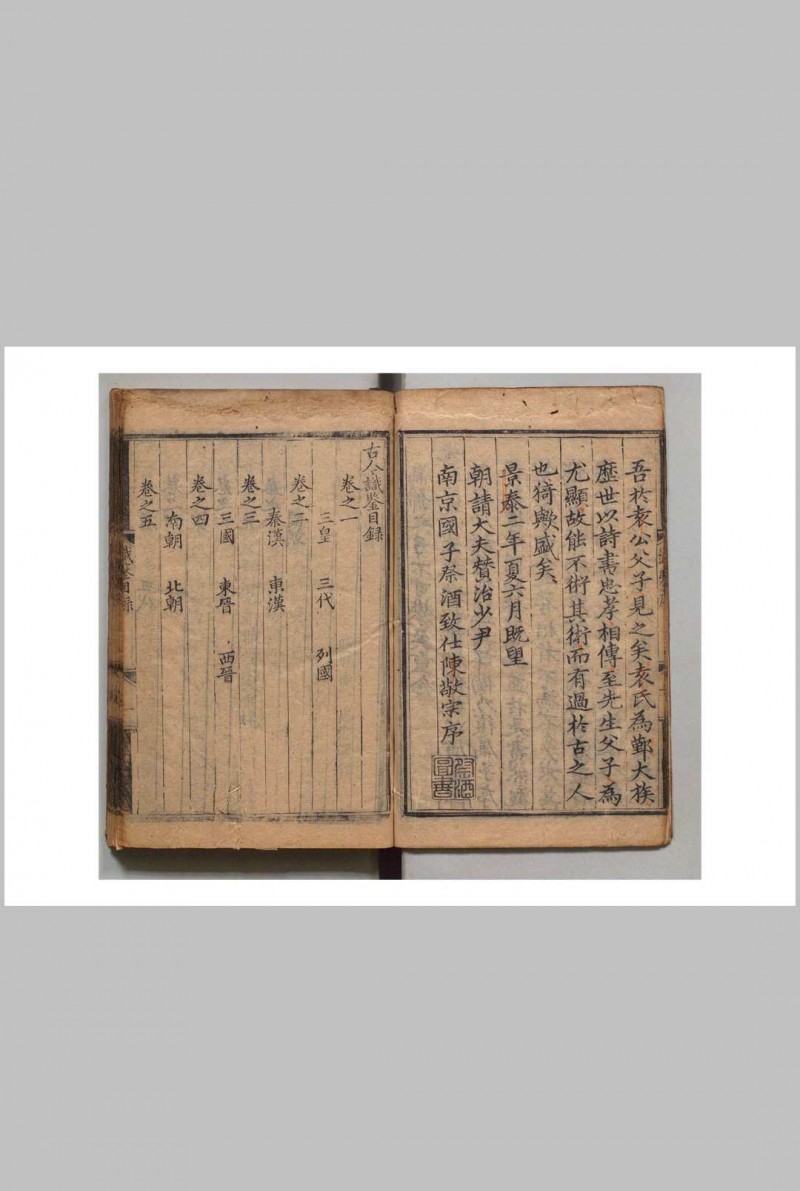 吾於袁公父子見之矣袁氏為鄞大族
歷世以詩書忠孝相傳至先生父子為
尤顯故能不術其術而有過於古之人
也猗歟盛矣
景泰二年夏六月既望
朝請大夫贊治少尹
南京國子祭酒致仕陳敬宗序
祭酒圖書
古今識鑒目録
卷之一
三皇 三代 列國
卷之二
秦漢 東漢
卷之三
三國 東晉 西晉
卷之四
南朝 北朝
卷之五
識鑒目録